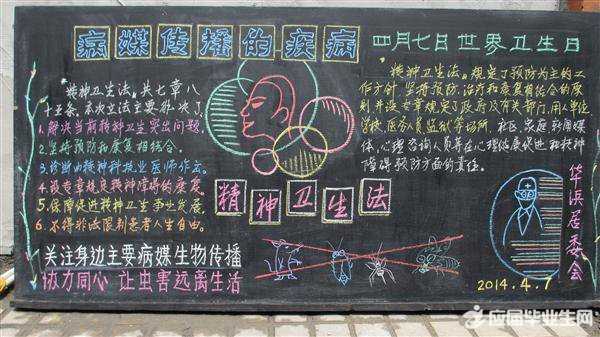 病媒传播的疾病
四月七日世界卫生日
精神卫生法。共七章八
十五条。本次立法主要解决了
1.解决当前精神卫生突出问题。
2.坚持预防和康复相结合。
3.诊断由精神科执业医师作出。
4.设专章规定精神障碍的康复。
5.保障促进精神卫生事业发展。
6.不得非法限制患者人生自由。
关注身边主要病媒生物传播
协力同心 让虫害远离生活
精神卫生法。规定了预防为主的工
作方针 坚持预防、治疗和康复相结合的原
则 并设专章规定了政府及有关部门、用人单位、
学校、医务人员、监狱等场所、社区、家庭、新闻媒
体、心理咨询人员等在心理健康促进和精神
障碍预防方面的责任。
精神卫生法
华浜居委会
2014.4.7
应届毕业生网